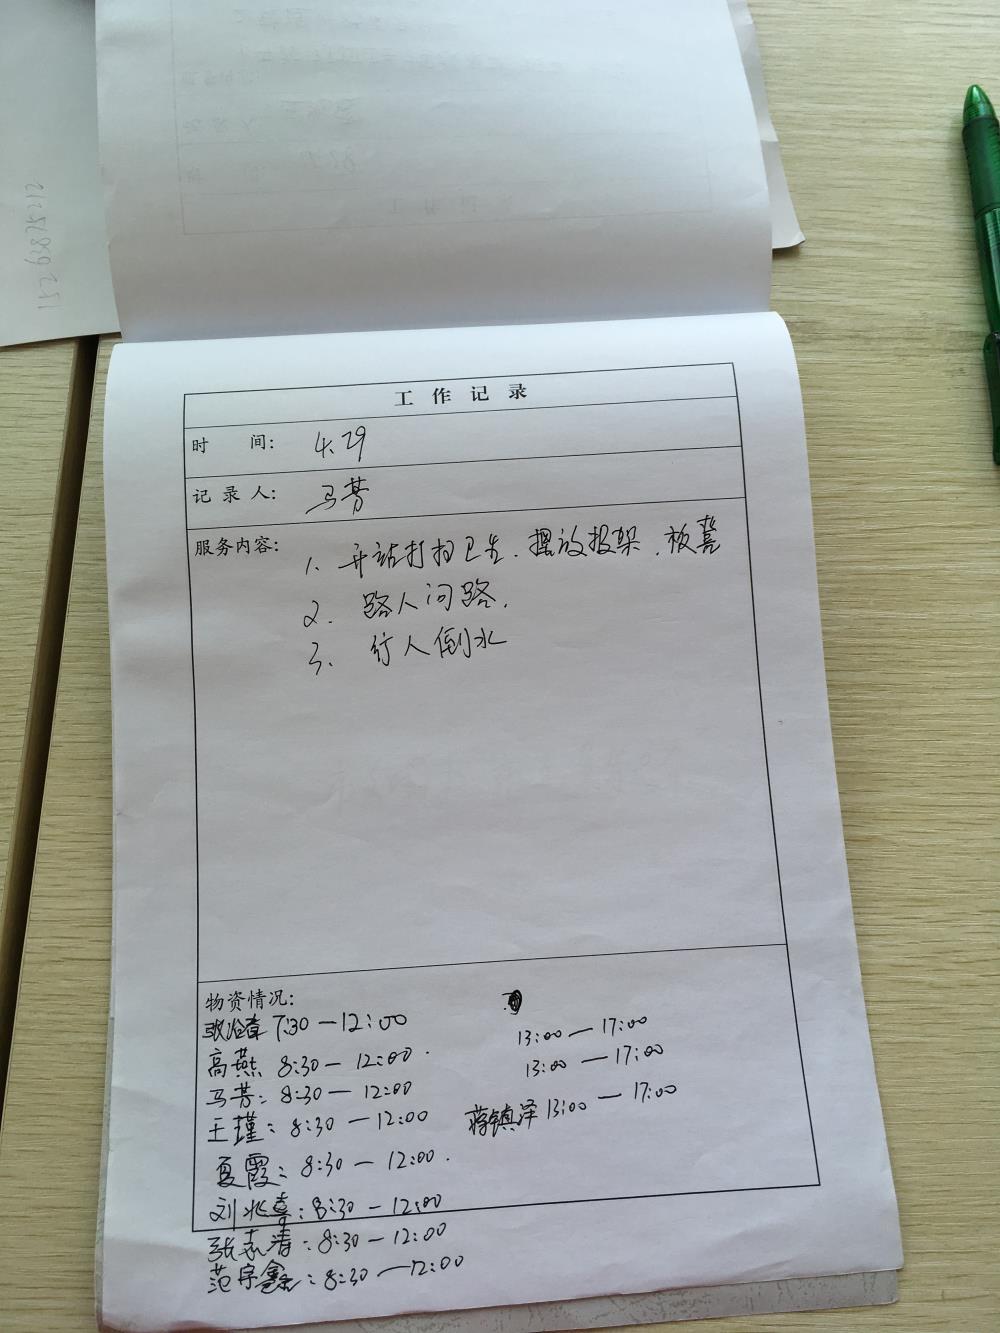 工作记录
时 间: 4.29
记录人: 马芳
服务内容:
1. 开站打扫卫生.摆放报架.板凳
2. 路人问路.
3. 行人倒水
物资情况:
7:30—12:00
高燕 8:30—12:00. 13:00—17:00
马芳: 8:30—12:00 13:00—17:00
王瑾: 8:30—12:00 蒋镇泽 13:00—17:00
夏霞: 8:30—12:00.
刘兆喜: 8:30—12:00
张志清: 8:30—12:00
范宇鑫: 8:30—12:00
15263875212